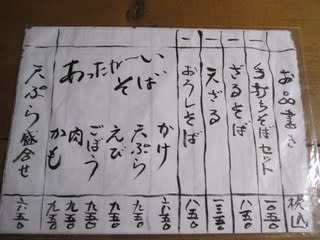 お品書き 税込
一 手打ちそばセット 一〇五〇
一 ざるそば 八五〇
一 天ざる 一三五〇
一 おろしそば 八五〇
あったか〜いそば
かけ 六五〇
天ぷら 九五〇
えび 九五〇
ごぼう 九五〇
肉 九五〇
かも 九五〇
天ぷら盛合せ 六五〇